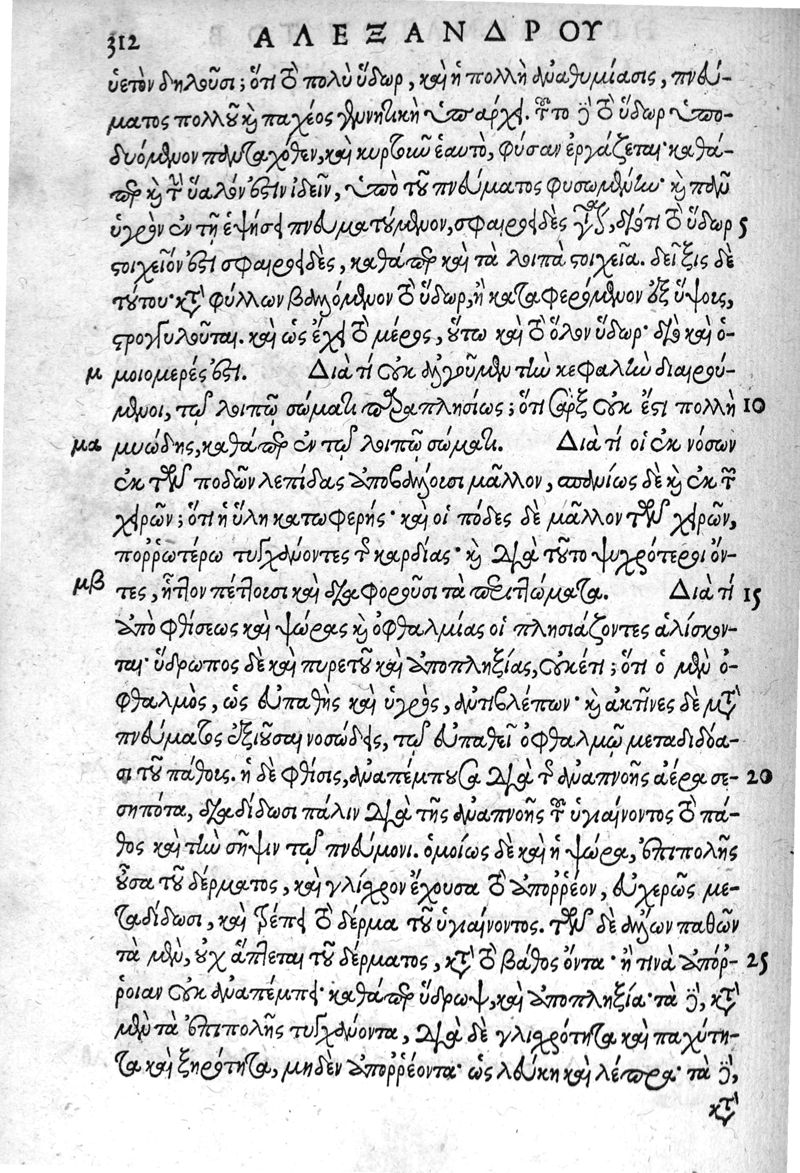 312 ΑΛΕΞΑΝΔΡΟΥ
ὑετὸν δηλοῦσι; ὅτι τὸ πολὺ ὕδωρ, καὶ ἡ πολλὴ ἀναθυμίασις, πνεύ-
ματος πολλοῦ καὶ παχέος γεννητικὴ ὑπάρχει. τοῦτο δὲ τὸ ὕδωρ ὑπο-
δυόμενον πανταχόθεν, καὶ κυρτοῦν ἑαυτὸ, φύσαν ἐργάζεται· καθά-
περ καὶ τὴν ὕαλόν ἐστιν ἰδεῖν, ὑπὸ τοῦ πνεύματος φυσωμένην· καὶ πᾶν
ὑγρὸν ἐν τῇ ἑψήσει πνευματούμενον, σφαιροειδὲς γίνεται, διότι τὸ ὕδωρ 5
στοιχεῖόν ἐστι σφαιροειδὲς, καθάπερ καὶ τὰ λοιπὰ στοιχεῖα. δεῖξις δὲ
τούτου· κατὰ φύλλων βαλλόμενον τὸ ὕδωρ, ἢ καταφερόμενον ἐξ ὕψους,
στρογγυλοῦται. καὶ ὡς ἔχει τὸ μέρος, οὕτω καὶ τὸ ὅλον ὕδωρ· διὸ καὶ ὁ-
μ μοιομερές ἐστι. Διὰ τί οὐκ ἀλγοῦμεν τὴν κεφαλὴν διαιρού-
μενοι, τῷ λοιπῷ σώματι παραπλησίως; ὅτι σὰρξ οὐκ ἔστι πολλὴ 10
μα μυώδης, καθάπερ ἐν τῷ λοιπῷ σώματι. Διὰ τί οἱ ἐκ νόσων
ἐκ τῶν ποδῶν λεπίδας ἀποβάλλουσι μᾶλλον, σπανίως δὲ καὶ ἐκ τῶν
χειρῶν; ὅτι ἡ ὕλη κατωφερής· καὶ οἱ πόδες δὲ μᾶλλον τῶν χειρῶν,
ποῤῥωτέρω τυγχάνοντες τῆς καρδίας· καὶ διὰ τοῦτο ψυχρότεροι ὄν-
μβ τες, ἧττον πέττουσι καὶ διαφοροῦσι τὰ περιττώματα. Διὰ τί 15
ἀπὸ φθίσεως καὶ ψώρας καὶ ὀφθαλμίας οἱ πλησιάζοντες ἁλίσκον-
ται· ὕδρωπος δὲ καὶ πυρετοῦ καὶ ἀποπληξίας, οὐκέτι; ὅτι ὁ μὲν ὀ-
φθαλμὸς, ὡς εὐπαθὴς καὶ ὑγρὸς, ἀντιβλέπων· καὶ ἀκτῖνες δὲ μετὰ
πνεύματος ἐξιοῦσαι νοσώδεις, τῷ εὐπαθεῖ ὀφθαλμῷ μεταδιδόα-
σι τοῦ πάθους. ἡ δὲ φθίσις, ἀναπέμπουσα διὰ τῆς ἀναπνοῆς ἀέρα σε- 20
σηπότα, διαδίδωσι πάλιν διὰ τῆς ἀναπνοῆς τοῦ ὑγιαίνοντος τὸ πά-
θος καὶ τὴν σῆψιν τῷ πνεύμονι. ὁμοίως δὲ καὶ ἡ ψώρα, ἐπιπολῆς
οὖσα τοῦ δέρματος, καὶ γλίσχρον ἔχουσα τὸ ἀποῤῥέον, εὐχερῶς με-
ταδίδωσι, καὶ τρέπει τὸ δέρμα τοῦ ὑγιαίνοντος. τῶν δὲ ἄλλων παθῶν
τὰ μὲν, οὐχ ἅπτεται τοῦ δέρματος, κατὰ τὸ βάθος ὄντα· ἤ τινὰ ἀπόῤ- 25
ῥοιαν οὐκ ἀναπέμπει· καθάπερ ὕδρωψ, καὶ ἀποπληξία· τὰ δὲ, κατὰ
μὲν τὰ ἐπιπολῆς τυγχάνοντα, διὰ δὲ γλισχρότητα καὶ παχύτη-
τα καὶ ξηρότητα, μηδὲν ἀποῤῥέοντα· ὡς λεύκη καὶ λέπρα· τὰ δὲ,
κατὰ